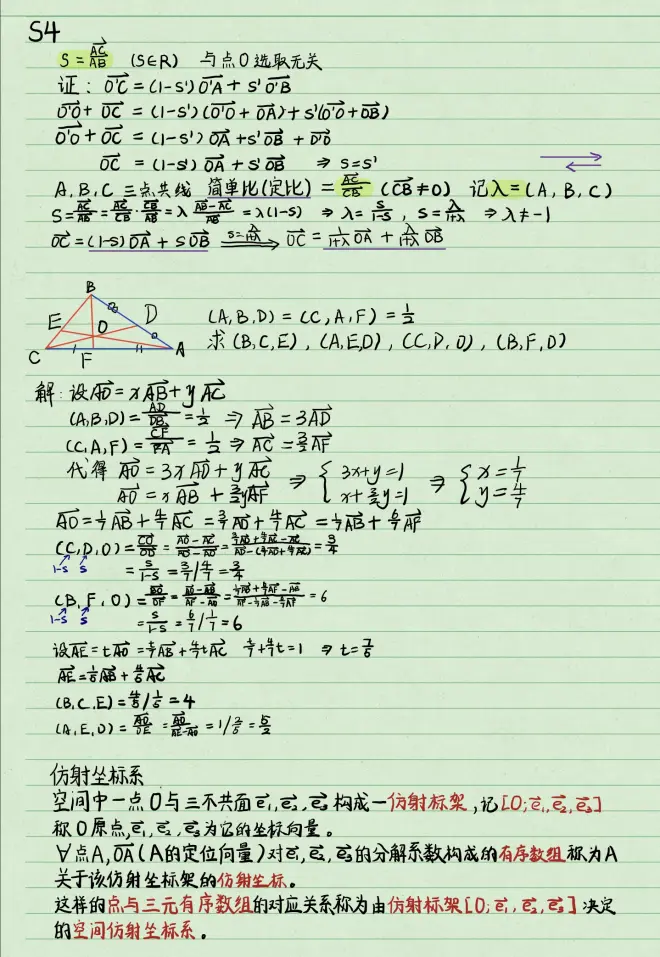 S4
S = \frac{\vec{AC}}{\vec{AB}} (S∈R) 与点O选取无关
证: \vec{O'C} = (1-S')\vec{O'A} + S'\vec{O'B}
\vec{O'O} + \vec{OC} = (1-S')(\vec{O'O} + \vec{OA}) + S'(\vec{O'O} + \vec{OB})
\vec{O'O} + \vec{OC} = (1-S')\vec{OA} + S'\vec{OB} + \vec{O'O}
\vec{OC} = (1-S')\vec{OA} + S'\vec{OB} ⇒ S=S'
A, B, C 三点共线 简单比(定比) = \frac{\vec{AC}}{\vec{CB}} (\vec{CB}≠0) 记λ=(A, B, C)
S = \frac{\vec{AC}}{\vec{AB}} = \frac{\vec{AC}}{\vec{CB}}·\frac{\vec{CB}}{\vec{AB}} = λ\frac{\vec{AB}-\vec{AC}}{\vec{AB}} = λ(1-S) ⇒ λ=\frac{S}{1-S}, S=\frac{λ}{1+λ} ⇒ λ≠-1
\vec{OC} = (1-S)\vec{OA} + S\vec{OB} \xRightarrow{S=\frac{λ}{1+λ}} \vec{OC} = \frac{1}{1+λ}\vec{OA} + \frac{λ}{1+λ}\vec{OB}
B
E D
O
C F A
(A,B,D) = (C,A,F) = \frac{1}{2}
求(B,C,E), (A,E,D), (C,D,O), (B,F,O)
解: 设\vec{AO} = x\vec{AB} + y\vec{AC}
(A,B,D) = \frac{\vec{AD}}{\vec{DB}} = \frac{1}{2} ⇒ \vec{AB} = 3\vec{AD}
(C,A,F) = \frac{\vec{CF}}{\vec{FA}} = \frac{1}{2} ⇒ \vec{AC} = \frac{3}{2}\vec{AF}
代得 \vec{AO} = 3x\vec{AD} + y\vec{AC} ⇒ { 3x+y=1 ⇒ { x=\frac{1}{7}
\vec{AO} = x\vec{AB} + \frac{3}{2}y\vec{AF} x+\frac{3}{2}y=1 y=\frac{4}{7}
\vec{AO} = \frac{1}{7}\vec{AB} + \frac{4}{7}\vec{AC} = \frac{3}{7}\vec{AD} + \frac{4}{7}\vec{AC} = \frac{1}{7}\vec{AB} + \frac{6}{7}\vec{AF}
(C,D,O) = \frac{\vec{CO}}{\vec{OD}} = \frac{\vec{AO}-\vec{AC}}{\vec{AD}-\vec{AO}} = \frac{\frac{3}{7}\vec{AD}+\frac{4}{7}\vec{AC}-\vec{AC}}{\vec{AD}-(\frac{3}{7}\vec{AD}+\frac{4}{7}\vec{AC})} = \frac{3}{4}
1-S S = \frac{S}{1-S} = \frac{3}{7}/\frac{4}{7} = \frac{3}{4}
(B,F,O) = \frac{\vec{BO}}{\vec{OF}} = \frac{\vec{AO}-\vec{AB}}{\vec{AF}-\vec{AO}} = \frac{\frac{1}{7}\vec{AB}+\frac{6}{7}\vec{AF}-\vec{AB}}{\vec{AF}-\frac{1}{7}\vec{AB}-\frac{6}{7}\vec{AF}} = 6
1-S S = \frac{S}{1-S} = \frac{6}{7}/\frac{1}{7} = 6
设\vec{AE} = t\vec{AO} = \frac{t}{7}\vec{AB} + \frac{4}{7}t\vec{AC} \frac{t}{7}+\frac{4}{7}t=1 ⇒ t=\frac{7}{5}
\vec{AE} = \frac{1}{5}\vec{AB} + \frac{4}{5}\vec{AC}
(B,C,E) = \frac{4}{5}/\frac{1}{5} = 4
(A,E,O) = \frac{\vec{AO}}{\vec{OE}} = \frac{\vec{AO}}{\vec{AE}-\vec{AO}} = 1/\frac{2}{5} = \frac{5}{2}
仿射坐标系
空间中一点O与三不共面\vec{e_1},\vec{e_2},\vec{e_3}构成一仿射标架,记[O;\vec{e_1},\vec{e_2},\vec{e_3}]
称O原点,\vec{e_1},\vec{e_2},\vec{e_3}为它的坐标向量。
∀点A,\vec{OA}(A的定位向量)对\vec{e_1},\vec{e_2},\vec{e_3}的分解系数构成的有序数组称为A
关于该仿射坐标架的仿射坐标。
这样的点与三元有序数组的对应关系称为由仿射标架[O;\vec{e_1},\vec{e_2},\vec{e_3}]决定
的空间仿射坐标系。